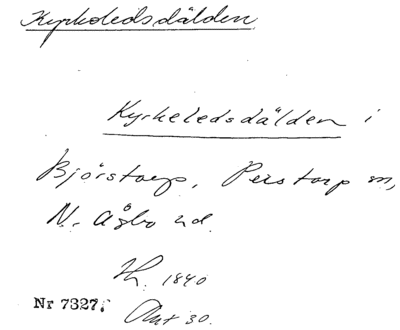 Kyrkoledsdälden
Kyrkeledsdälden i
Björstorp, Perstorp sn,
N. Åsbo hd.
1840
Nr 7327. Akt 30.